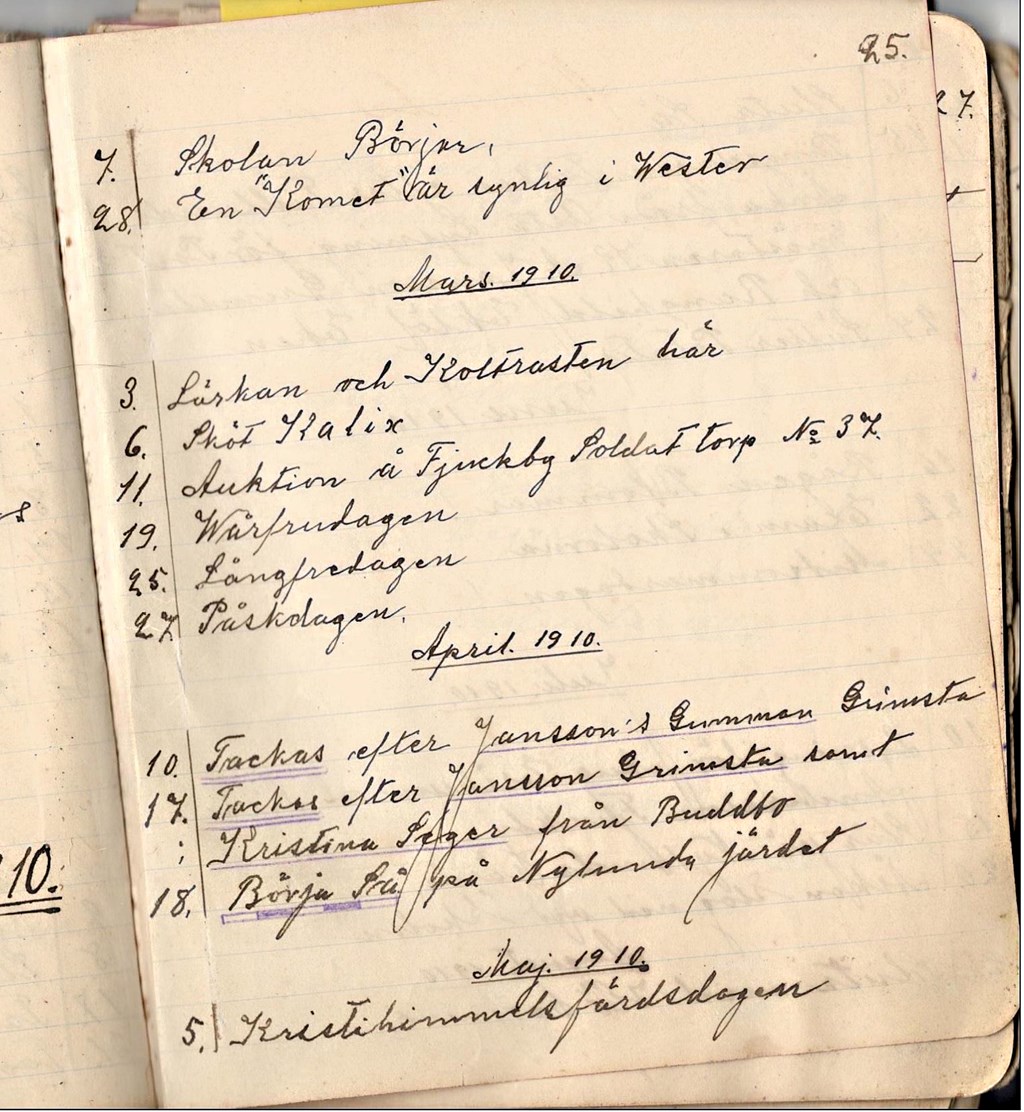 25.
7. Skolan Börjar.
28. En "Komet" är synlig i Wester
Mars. 1910.
3. Lärkan och Koltrasten här
6. Sköt Kalix
11. Auktion å Fjuckby Soldat torp No 37.
19. Wårfrudagen
25. Långfredagen
27. Påskdagen.
April. 1910.
10. Tackas efter Jansson's Gumman Grimsta
17. Tackas efter Jansson Grimsta samt
; Kristina Seger från Buddbo
18. Börja Så på Nylunda järdet
Maj. 1910.
5. Kristihimmelsfärdsdagen
10.
27.